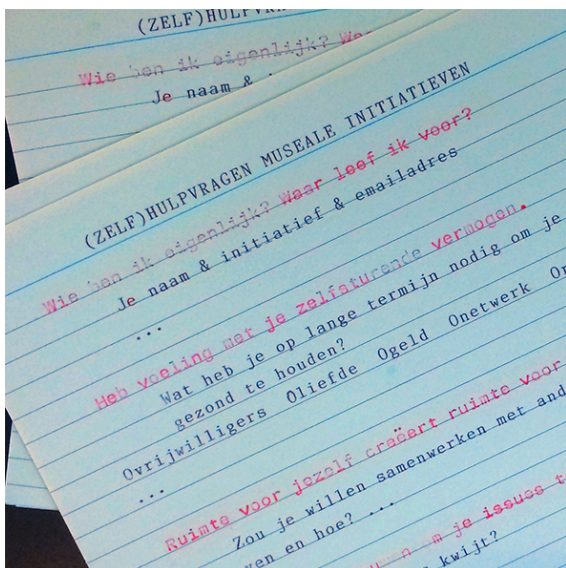 (ZELF)HULPVRA
Wie ben ik eigenlijk? Waa
Je naam &
(ZELF)HULPVRAGEN MUSEALE INITIATIEVEN
Wie ben ik eigenlijk? Waar leef ik voor?
Je naam & initiatief & emailadres
...
Heb voeling met je zelfsturende vermogen.
Wat heb je op lange termijn nodig om je
gezond te houden?
Ovrijwilligers Oliefde Ogeld Onetwerk On
...
Ruimte voor jezelf creëert ruimte voor
Zou je willen samenwerken met and
ven en hoe? ...
om je issues t
kwijt?